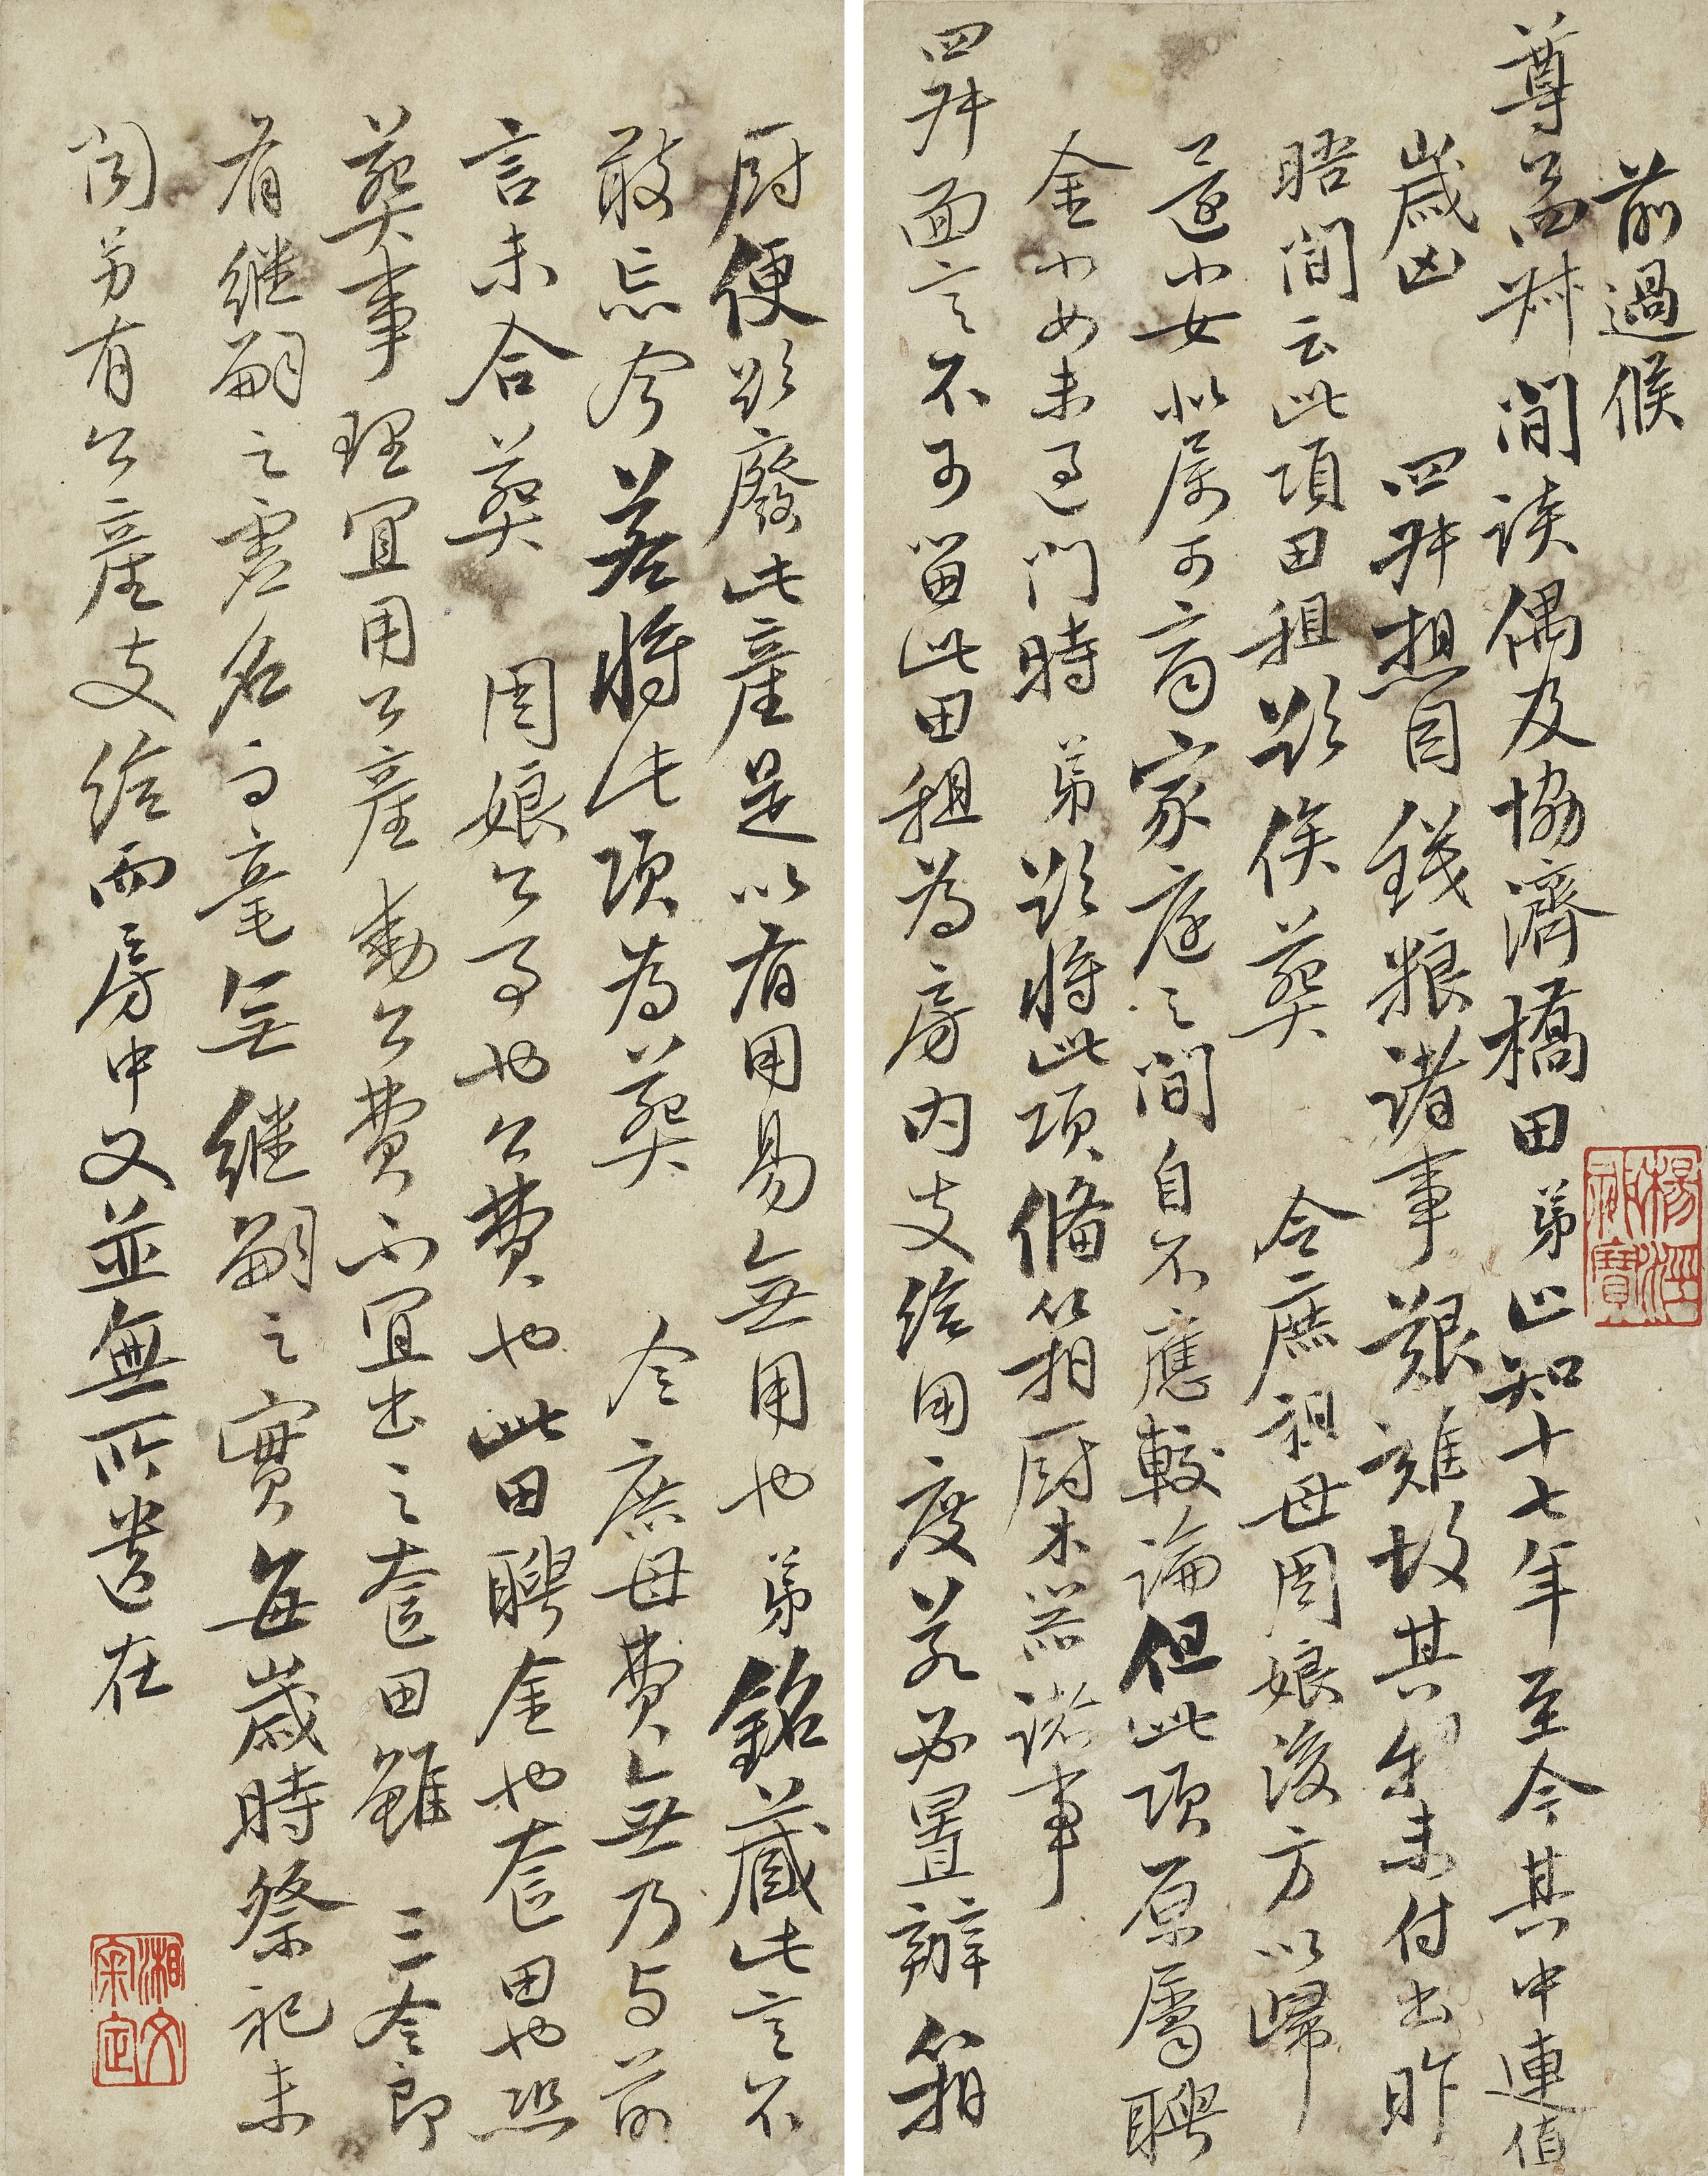 前過候
尊孟舛間談偶及協濟橋田弟止知十七年至今其中連值
歲凶 四舛想因錢粮諸事艱難故其租未付出昨
晤間云此項田租欲俟葬 令庶祖母周娘後方以歸
還小女似属可商家庭之間自不應較論但此項原屬聘
金小女未過門時 弟欲將此項備箱厨木器諸事
四舛面言不可留此田租為房内支給用度若必置辦箱
厨便欲廢此產是以有用易無用也 弟銘藏此言不
敢忘今若將此項為葬 令庶母費無乃与前
言未合葬 周娘公事也公費也此田聘金也奩田也照
葬事理宜用公產動公費不宜出之奩田雖 三令郎
有継嗣之虚名而毫無継嗣之實每歲時祭祀未
聞另有公產支給而房中又並無所遺在
楊涇
湘文